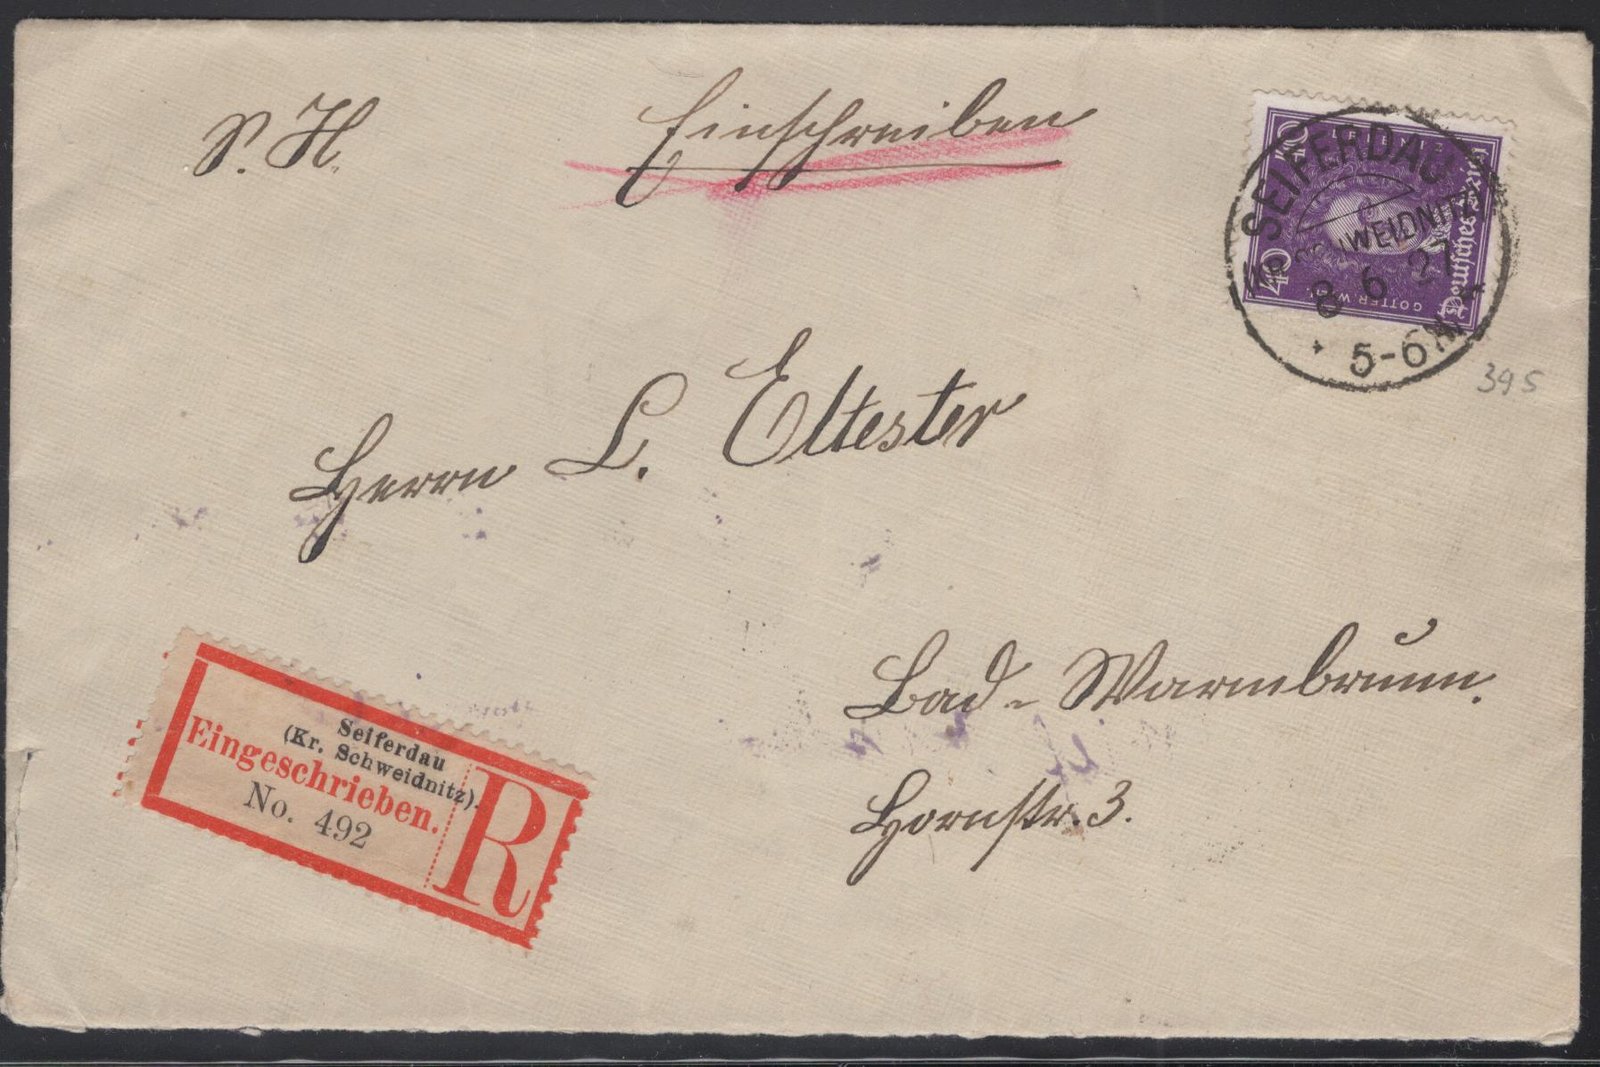 S. H.
Einschreiben
40 40
Deutsches Reich
SEIFERDAU
KR. SCHWEIDNITZ
8.6.27
5-6 N
395
Herrn L. Eltester
Bad-Warmbrunn.
Hornstr. 3.
Seiferdau
(Kr. Schweidnitz).
Eingeschrieben.
No. 492
R